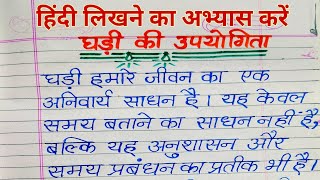 हिंदी लिखने का अभ्यास करें
घड़ी की उपयोगिता
घड़ी हमारे जीवन का एक
अनिवार्य साधन है। यह केवल
समय बताने का साधन नहीं है,
बल्कि यह अनुशासन और
समय प्रबंधन का प्रतीक भी है।